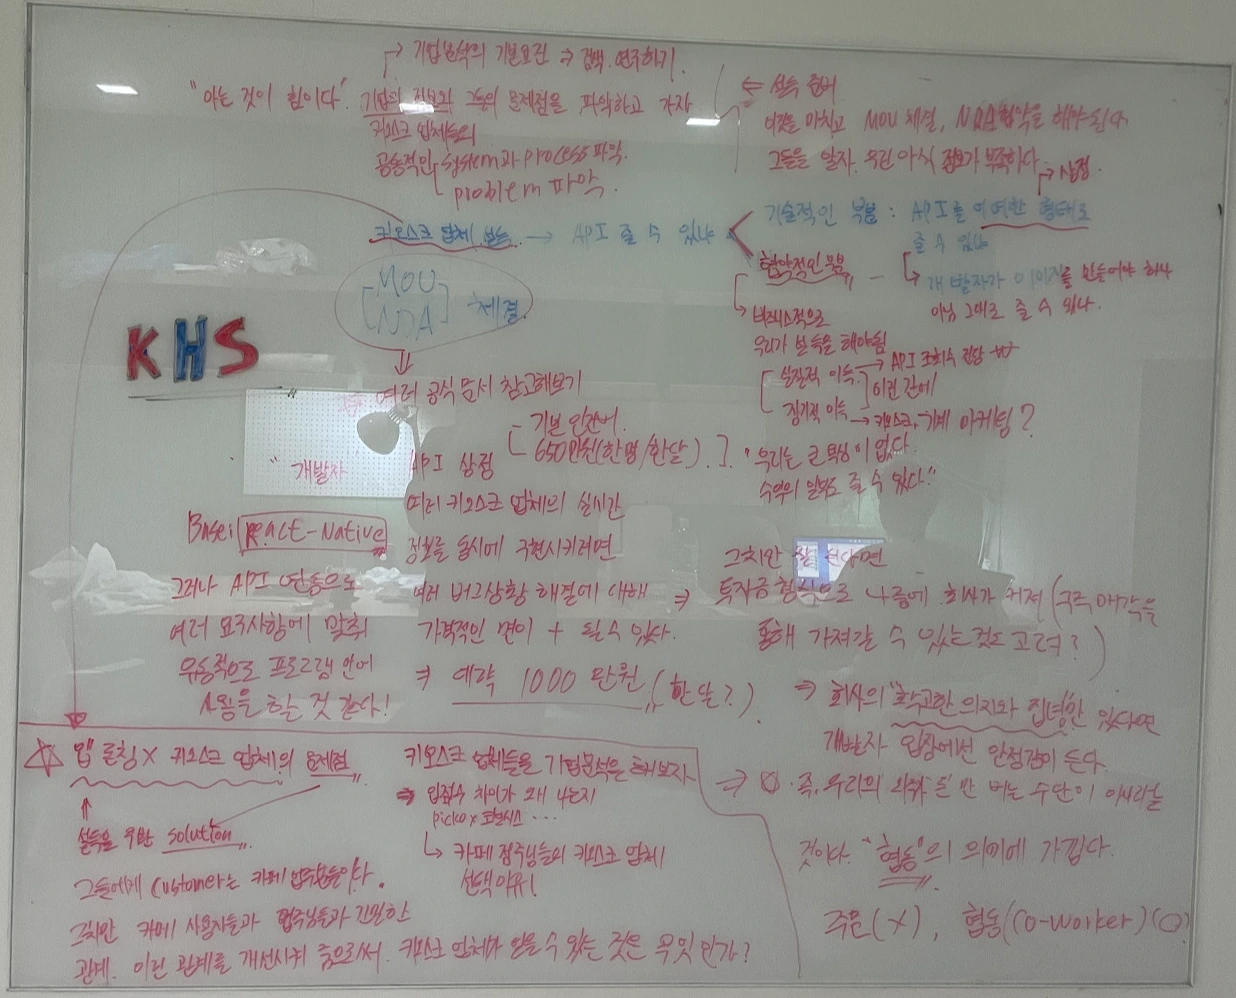 → 기업분석의 기본요건 ⇒ 검색. 연구하기.
"아는 것이 힘이다". 기업의 정보와 그들의 문제점을 파악하고 가자
키오스크 업체들의
공통적인 system과 process 파악.
problem 파악.
이것을 마치고 MOU 체결, NDA협약을 해야 된다
그들을 알자. 우린 아직 정보가 부족하다.
키오스크 업체 → API 줄 수 있나
기술적인 부분 : API를 어떠한 형태로
줄 수 있나
협약적인 부분
개발자가 이미지를 만들어야 하나
아님 그대로 줄 수 있나.
MOU
NDA
체결.
비즈니스적으로
우리가 설득을 해야됨
실질적 이득. → API 조회수
이런 간에
장기적 이득 → 키오스크, 기계 마케팅?
KHS
여러 공식 문서 참고해보기
개발자
API 상점
기본 인건비.
650만원(한명/한달).
"우리는 큰 욕심이 없다.
수익의 일부도 줄 수 있다."
Base: React-Native
그러나 API 연동으로
여러 요구사항에 맞춰
유동적으로 프로그램 언어
사용을 할 것 같다!
여러 키오스크 업체의 실시간
정보를 동시에 구현시키려면
여러 버그상황 해결에 대해
가격적인 면이 + 될수 있다.
⇒ 예약 1000만원 (한달?).
그치만
⇒ 투자금 형식으로 나중에 회사가 커져
통해 가져갈 수 있는것도 고려?)
⇒ 회사의 "확고한 의지와 집념"만 있다면
개발자 입장에선 안정감이 든다.
즉, 우리의 외주 돈만 버는 수단이 아니라는
것이다. "협동"의 의미에 가깝다.
주문(X), 협동(Co-worker)(O)
☆ 앱 런칭 X 키오스크 업체의 문제점
설득을 위한 solution
그들에게 Customer는 카페 업주분들이다.
그치만 카페 사용자들과 업주님들과 긴밀한
관계. 이런 관계를 개선시켜 줌으로써. 키오스크 업체가 얻을 수 있는 것은 무엇인가?
키오스크 업체들을 기업분석을 해보자
⇒ 입점수 차이가 왜 나는지
↳ 카페 점주님들의 키오스크 업체
선택이유!